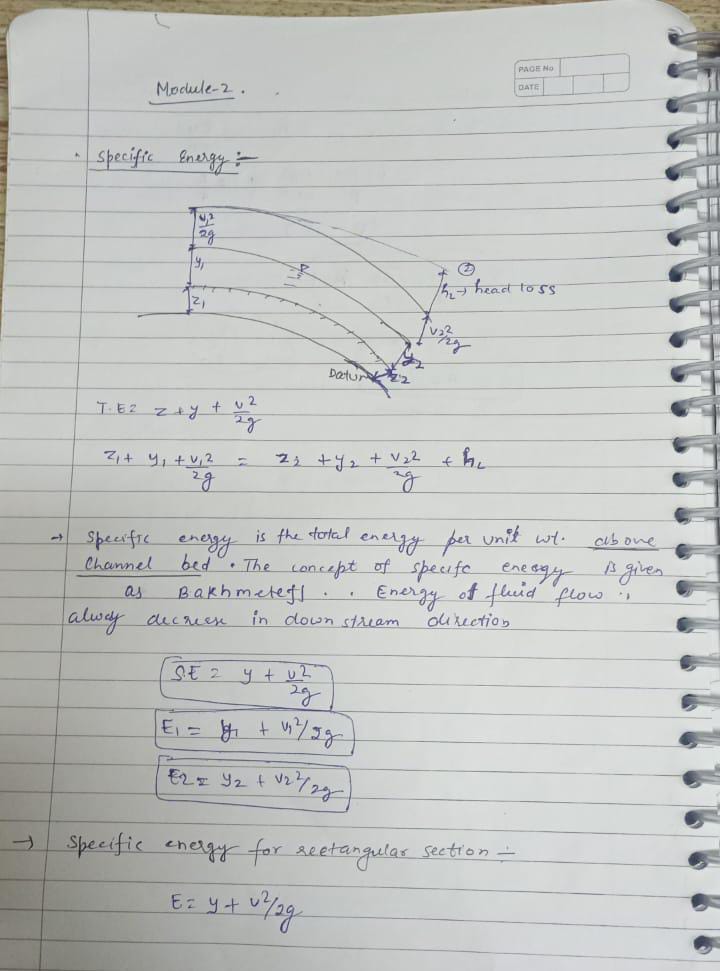 PAGE No
DATE
Module-2.
Specific Energy :-
v₁²/2g
y₁
z₁
②
h₂ → head loss
v₂²/2g
y₂
z₂
Datum
T.E = z + y + v²/2g
z₁ + y₁ + v₁²/2g = z₂ + y₂ + v₂²/2g + hL
→ Specific energy is the total energy per unit wt. above
channel bed. The concept of specifc energy is given
as Bakhmeteff . . Energy of fluid flow is
alwdy decrese in down stream direction
S.E = y + v²/2g
E₁ = y₁ + v₁²/2g
E2 = y₂ + v₂²/2g
→ Specific energy for rectangular section :-
E = y + v²/2g